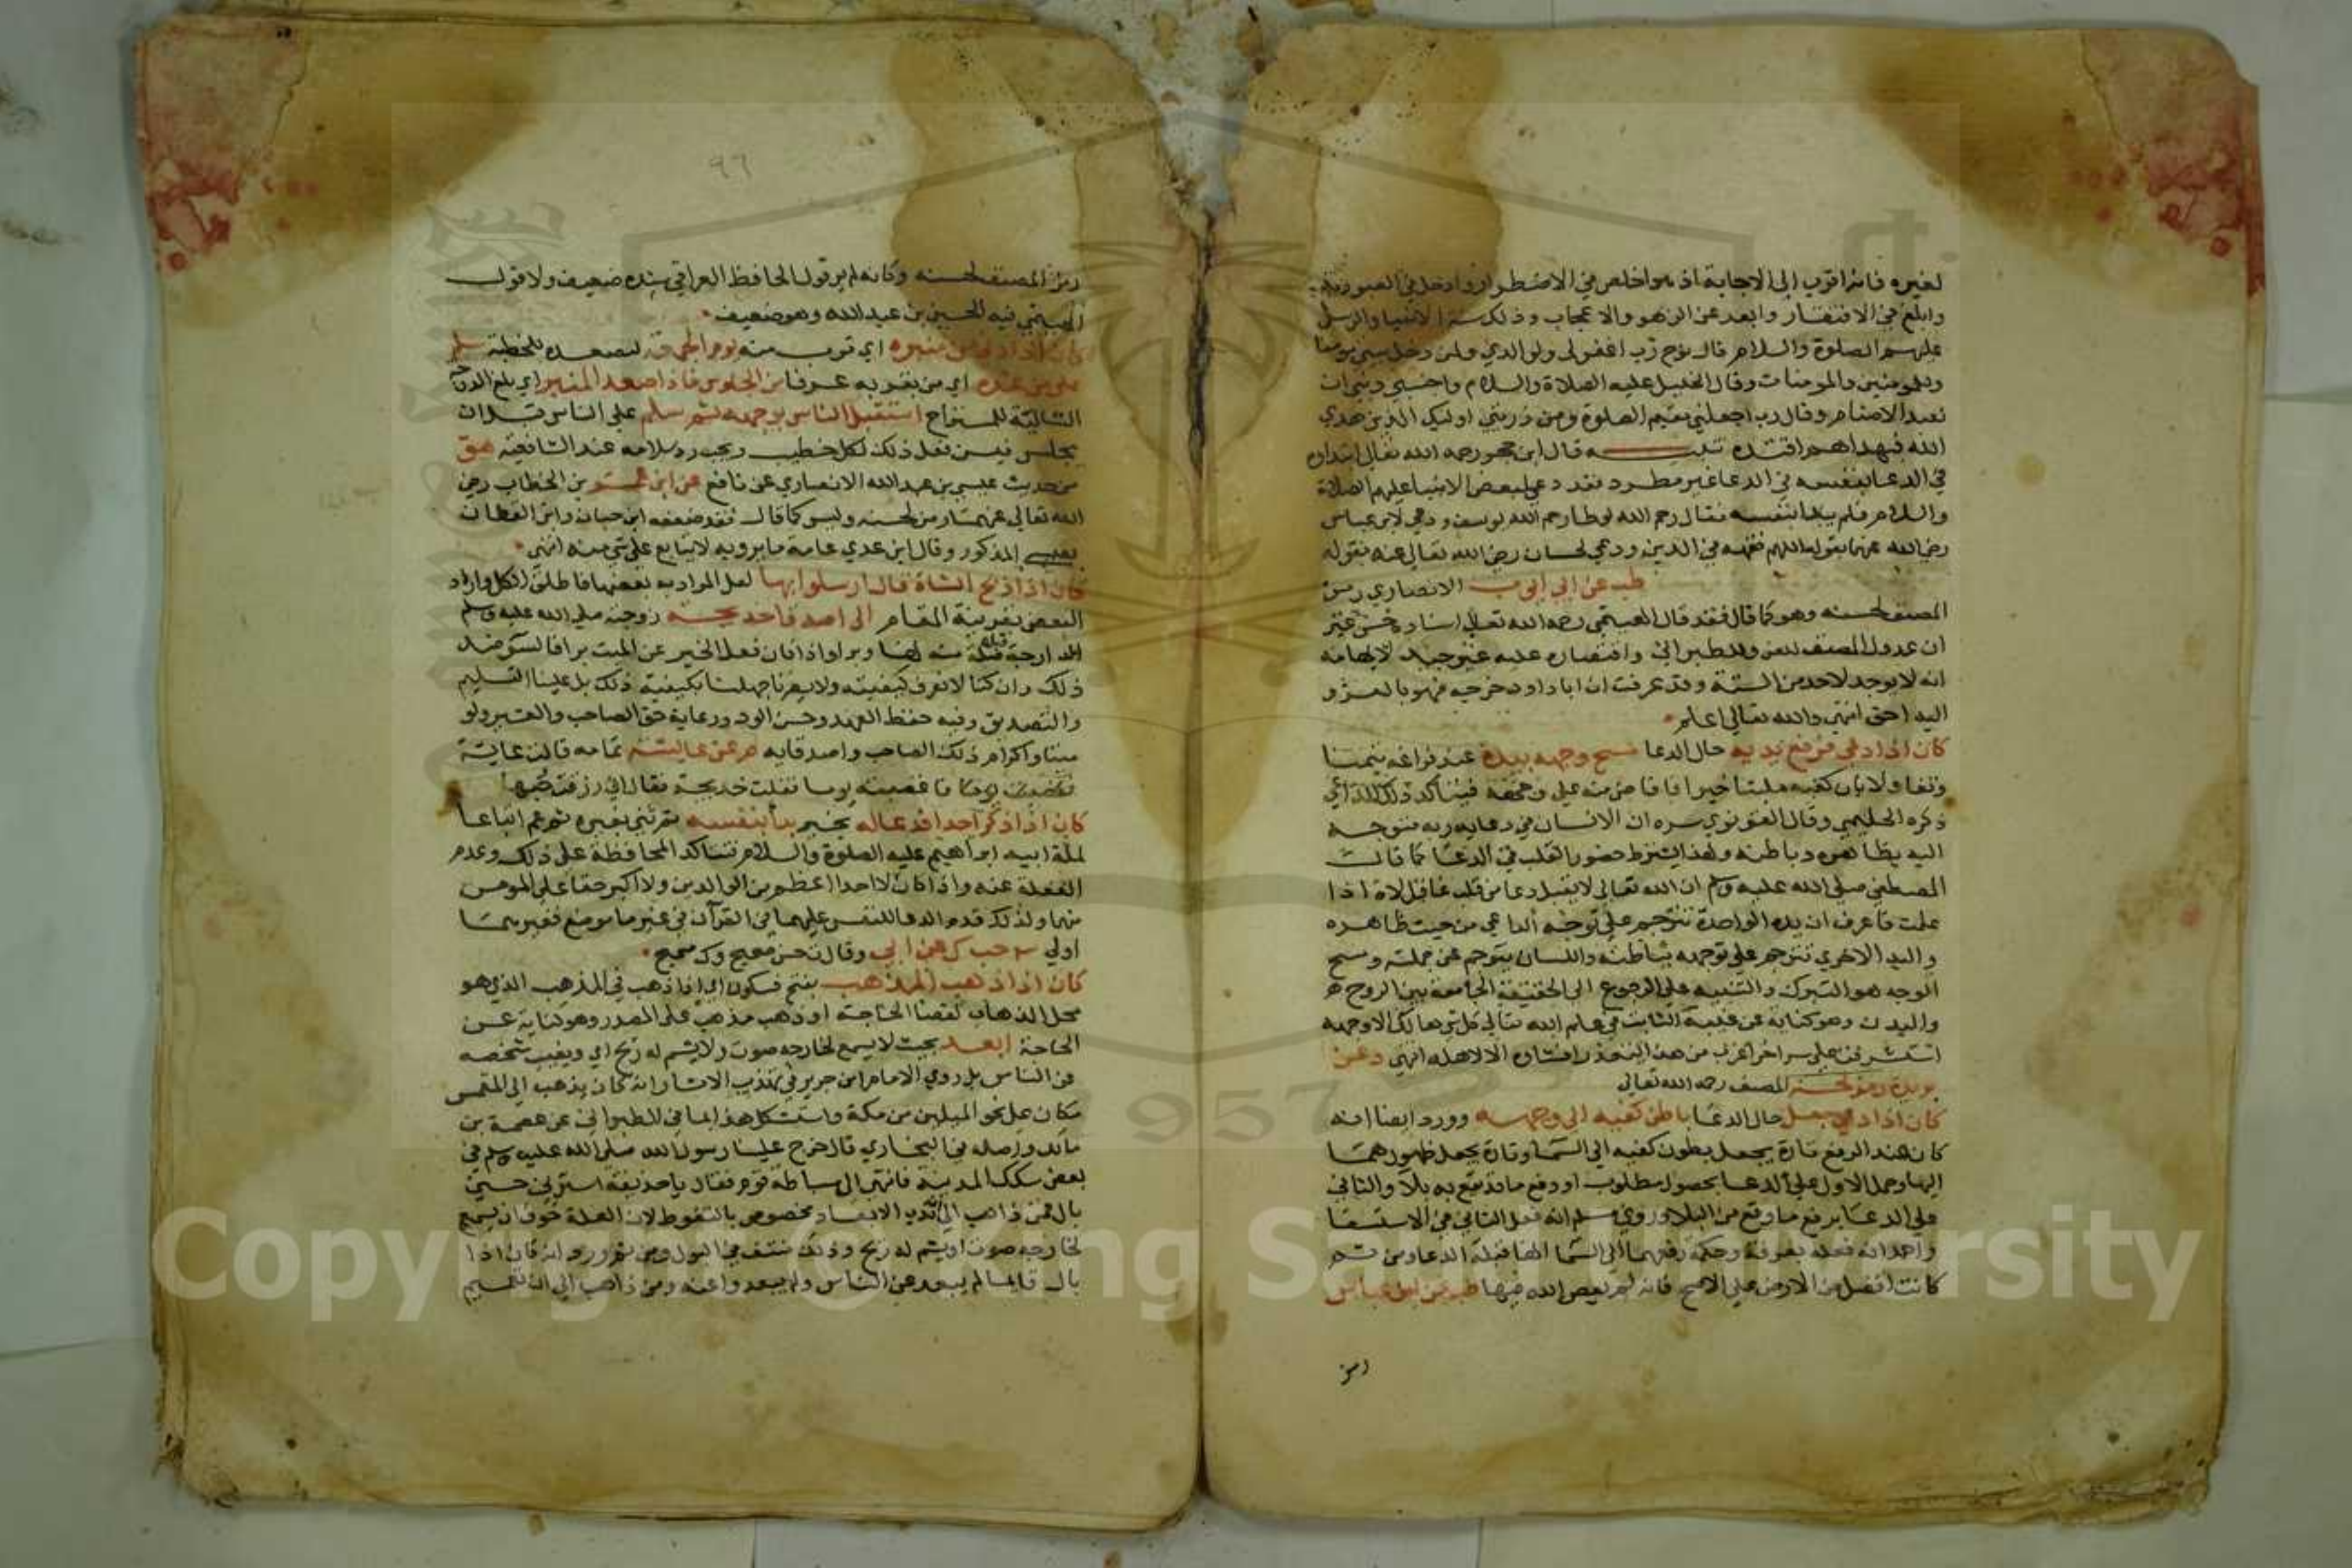 لغيره فانه اقرب الى الاجابة اذ هو اخلص في الاضطرار وادخل في العبودية
وابلغ في الافتقار وابعد عن الزهو والاعجاب وذلك سنة الانبيا والرسل
عليهم الصلوة والسلام قال نوح رب اغفر لي ولوالدي ولمن دخل بيتي مومنا
وللمومنين والمومنات وقال الخليل عليه الصلاة والسلام واجنبني وبني ان
نعبد الاصنام وقال رب اجعلني مقيم الصلوة ومن ذريتي اوليك الذين هدي
الله فبهداهم اقتده تنبيه قال ابن حجر رحمه الله تعالى ابتداوه
في الدعا بنفسه في الدعا غير مطرد فقد دعى لبعض الانبيا عليهم الصلاة
والسلام فلم يبدا بنفسه فقال رحم الله لوطا رحم الله يوسف ودعي لابن عباس
رضي الله عنهما بقوله اللهم فقهه في الدين ودعي لحسان رضي الله تعالى عنه بقوله
طب عن ابي ايوب الانصاري رمز
المصنف لحسنه وهو كما قال فقد قال الهيتمي رحمه الله تعالى اسناده حسن غير
ان عدول المصنف للعزو للطبراني واقتصاره عليه غير جيد لايهامه
انه لا يوجد لاحد من الستة وقد عرفت ان ابا داود خرجه فهو بالعزو
اليه احق انتهى والله تعالى اعلم
كان اذا دعى فرفع يديه حال الدعا مسح وجهه بيده عند فراغه تيمنا
وتفاولا بان كفيه مليتا خيرا فافاض منه على وجهه فيتاكد ذلك للداعي
ذكره الحليمي وقال القونوي سره ان الانسان في دعايه ربه متوجه
اليه بظاهره وباطنه ولهذا يشترط حضور القلب في الدعا كما قال
المصطفى صلى الله عليه وسلم ان الله تعالى لا يقبل دعا من قلب غافل لاه اذا
علمت فاعرف ان يده الواحدة تترجم على توجه الداعي من حيث ظاهره
واليد الاخري تترجم على توجهه بباطنه واللسان يترجم عن جملته ومسح
الوجه هو التبرك والتنبيه على الرجوع الى الحقيقة الجامعة بين الروح
والبدن وهو كناية عن غيبه الثابت في علم الله تعالى كل شي هالك الا وجهه
استشرفت على سر اخر اعز من هذا يتعذر افشاوه الا لاهله انتهى د عن
بريدة رمز لحسنه المصنف رحمه الله تعالى
كان اذا دعي جعل حال الدعا باطن كفيه الى وجهه وورد ايضا انه
كان عند الرفع تارة يجعل بطون كفيه الى السما وتارة يجعل ظهورهما
اليها وحمل الاول على الدعا بحصول مطلوب او دفع ما قد يقع به بلا والثاني
على الدعا برفع ما وقع من البلا وروي مسلم انه فعل الثاني في الاستسقا
واحد انه فعله بعرفة وحكمة رفعهما الى السما انها قبلة الدعا ومن ثم
كانت افضل من الارض على الاصح فانه لم يعص الله فيها طب عن ابن عباس
رمز
٩٦
رمز المصنف لحسنه وكانه لم ير قول الحافظ العراقي سنده ضعيف ولا قول
الهيتمي فيه الحسين بن عبد الله وهو ضعيف
كان اذا دنا من منبره اي قرب منه يوم الجمعة ليصعده للخطبة سلم
على من عنده اي من بقربه عرفا من الجلوس فاذا صعد المنبر اي بلغ الدرجة
التالية للمستراح استقبل الناس بوجهه ثم سلم على الناس قبل ان
يجلس فيسن فعل ذلك لكل خطيب ويجب رد سلامه عند الشافعية هق
من حديث عيسى بن عبد الله الانصاري عن نافع عن ابن عمر بن الخطاب رضي
الله تعالى عنهما رمز لحسنه وليس كما قال فقد ضعفه ابن حبان وابن القطان
بعيسى المذكور وقال ابن عدي عامة ما يرويه لا يتابع على شي منه انتهى
كان اذا ذبح الشاة قال ارسلوا بها لعل المراد به بعضها فاطلق الكل واراد
البعض بقرينة المقام الى اصدقا خديجة زوجته صلى الله عليه وسلم
منه لها وبرا واذا كان فعل الخير عن الميت برا
ذلك وان كنا لا نعرف كيفيته ولا يضرنا جهلنا بكيفية ذلك بل علينا التسليم
والتصديق وفيه حفظ العهد وحسن الود ورعاية حق الصاحب والعشير ولو
ميتا واكرام ذلك الصاحب واصدقايه م عن عايشة تمامه قالت عايشة
فاغضبته يوما فقلت خديجة فقال اني رزقت حبها
كان اذا ذكر احدا فدعا له بخير بدأ بنفسه ثم ثنى بغيره ثم عمم اتباعا
لملة ابيه ابراهيم عليه الصلوة والسلام فتتاكد المحافظة على ذلك وعدم
الغفلة عنه واذا كان لا احدا اعظم من الوالدين ولا اكبر حقا على المومن
منهما ولذلك قدم الدعا للنفس عليهما في القران في غير ما موضع فغيرهما
اولي ٣ حب ك عن ابي وقال ت حسن صحيح وك صحيح
كان اذا ذهب المذهب بفتح فسكون اي اذا ذهب في المذهب الذي هو
محل الذهاب لقضا الحاجة او ذهب مذهب على المصدر وهو كناية عن
الحاجة ابعد بحيث لا يسمع لخارجه صوت ولا يشم له ريح اي ويغيب شخصه
عن الناس بل روي الامام ابن جرير في تهذيب الاثار انه كان يذهب الى المغمس
مكان على نحو الميلين من مكة واستشكل هذا بما في للطبراني عن عصمة بن
مالك واصله في البخاري قال خرج علينا رسول الله صلى الله عليه وسلم في
بعض سكك المدينة فانتهى الى سباطة قوم فقال يا حذيفة استرني حتى
بال فمن ذاهب الى ان ندب الابعاد مخصوص بالتغوط لان العلة خوف ان يسمع
لخارجه صوت او يشم له ريح وذلك منتف في البول ومن ثم ورد انه كان اذا
بال قايما لم يبعد عن الناس ولم يبعدوا عنه ومن ذاهب الى ان تعميم
Copyright © King Saud University
1957